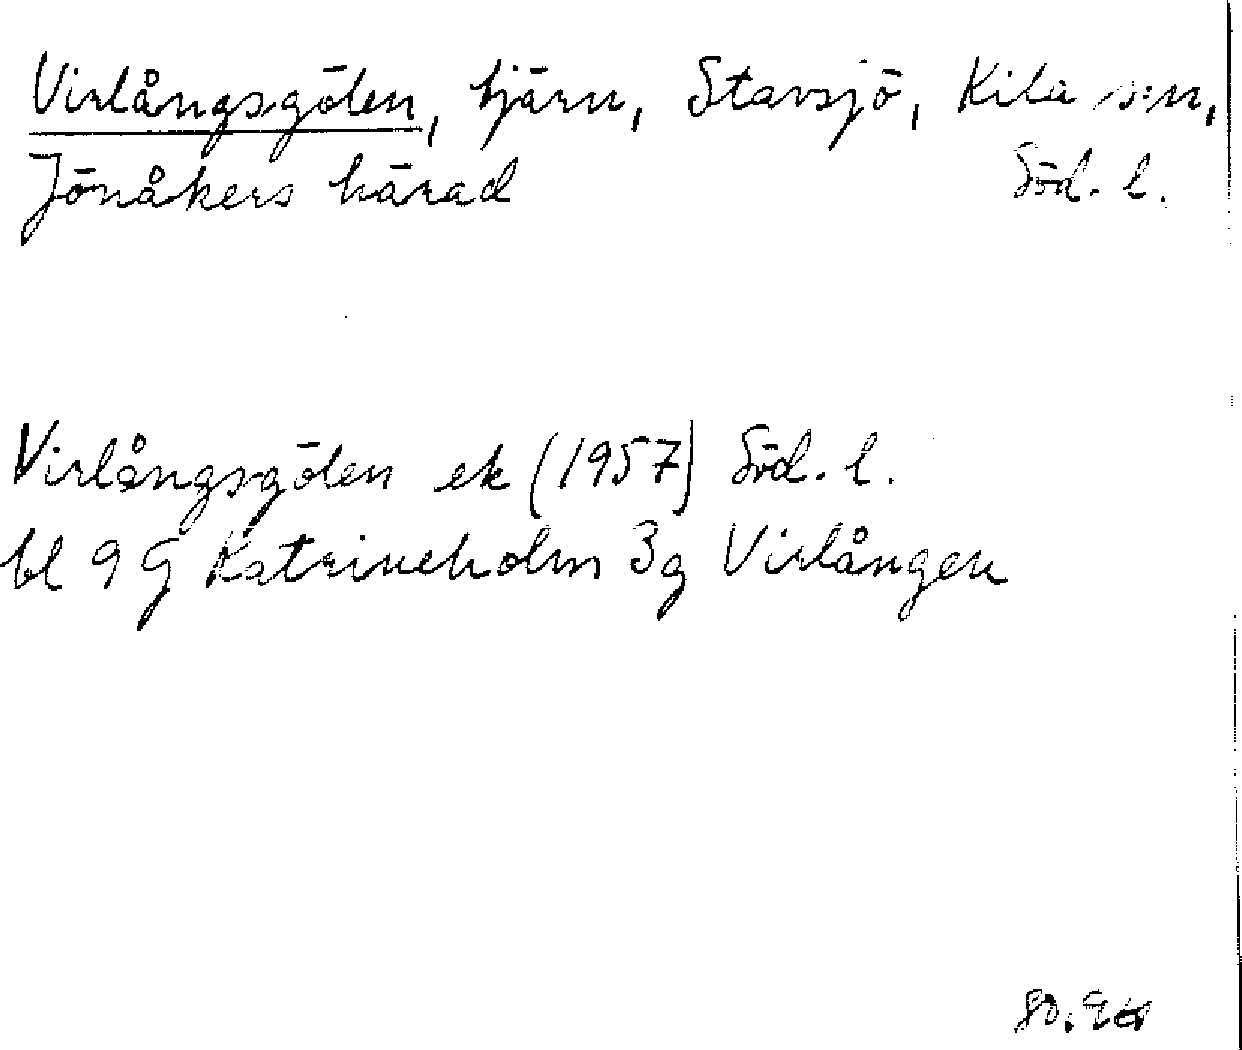 Virlångsgölen, tjärn, Stavsjö, Kila s:n,
Jönåkers härad Söd. l.
Virlångsgölen ek (1957) Söd. l.
bl 9 G Katrineholm 3g Virlången